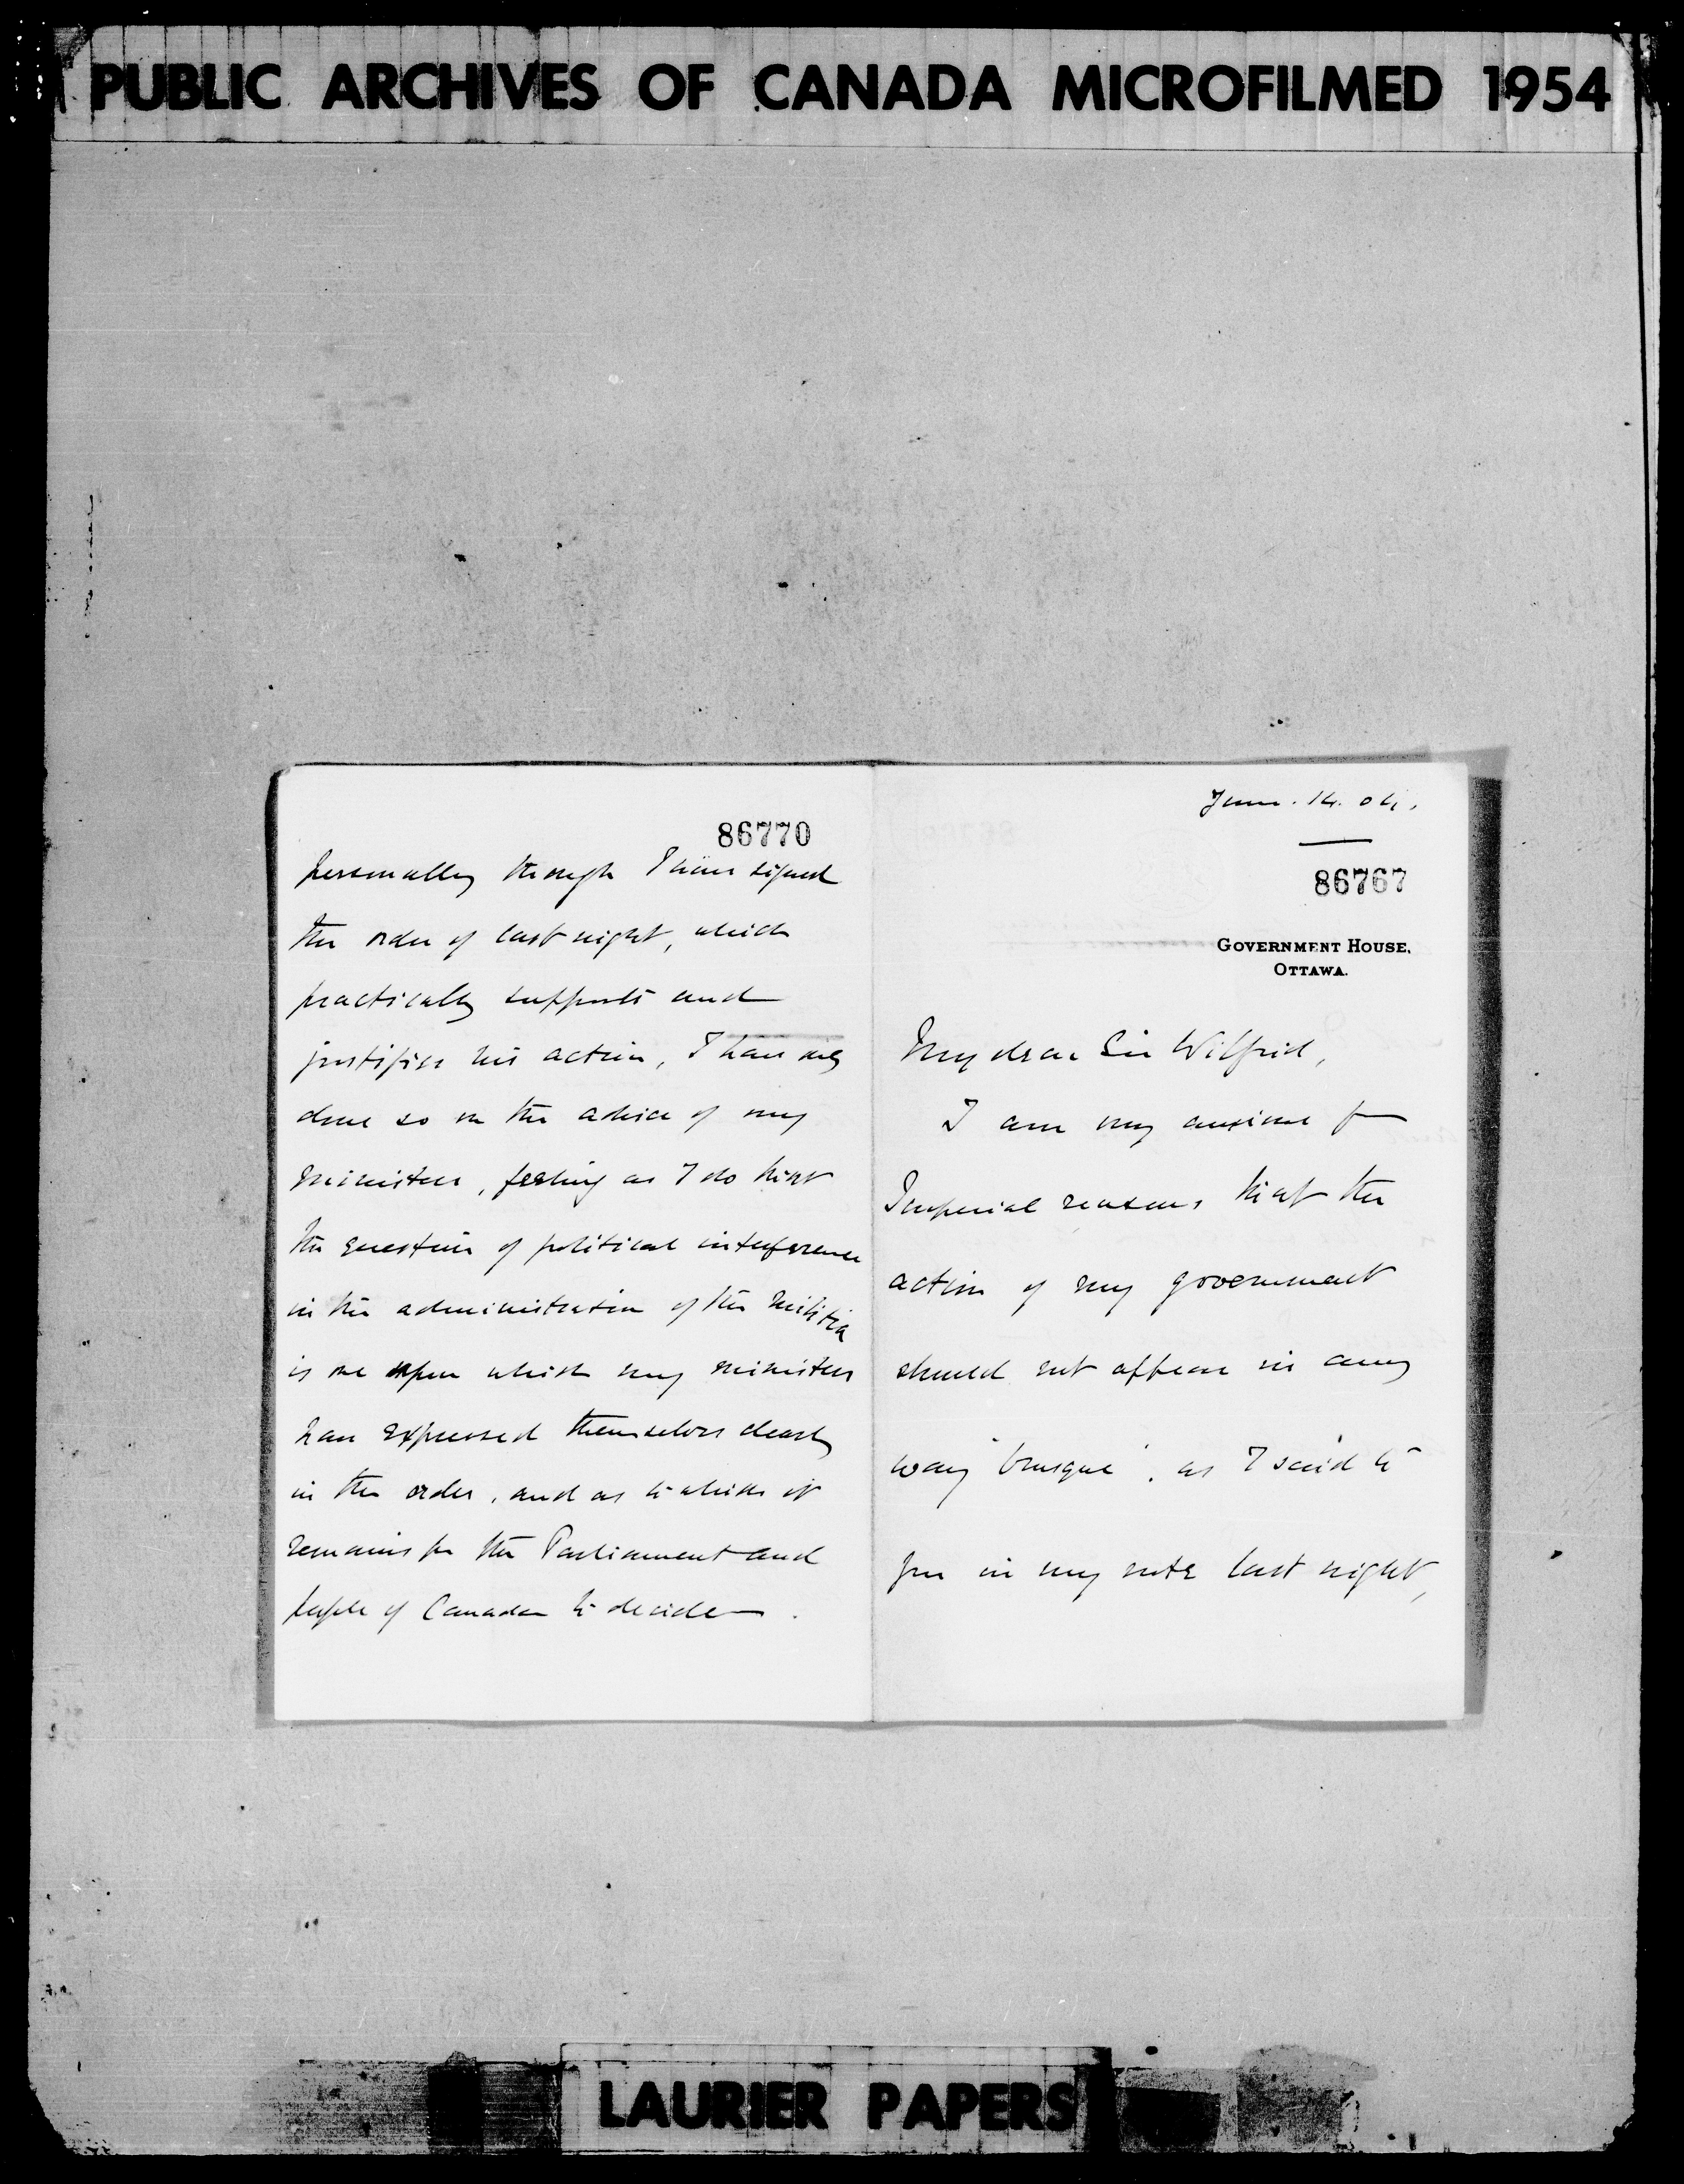 PUBLIC ARCHIVES OF CANADA MICROFILMED 1954
86770
personally though I have signed
the order of last night, which
practically supports and
justifies his action, I have only
done so on the advice of my
ministers, feeling as I do that
the question of political interference
in the administration of the militia
is one upon which my ministers
have expressed themselves clearly
in the order, and as to which it
remains for the Parliament and
people of Canada to decide.
June. 14. 04.
86767
GOVERNMENT HOUSE,
OTTAWA.
My dear Sir Wilfrid,
I am very anxious for
Imperial reasons that the
action of my government
should not appear in any
way "brusque", as I said to
you in my note last night,
LAURIER PAPERS